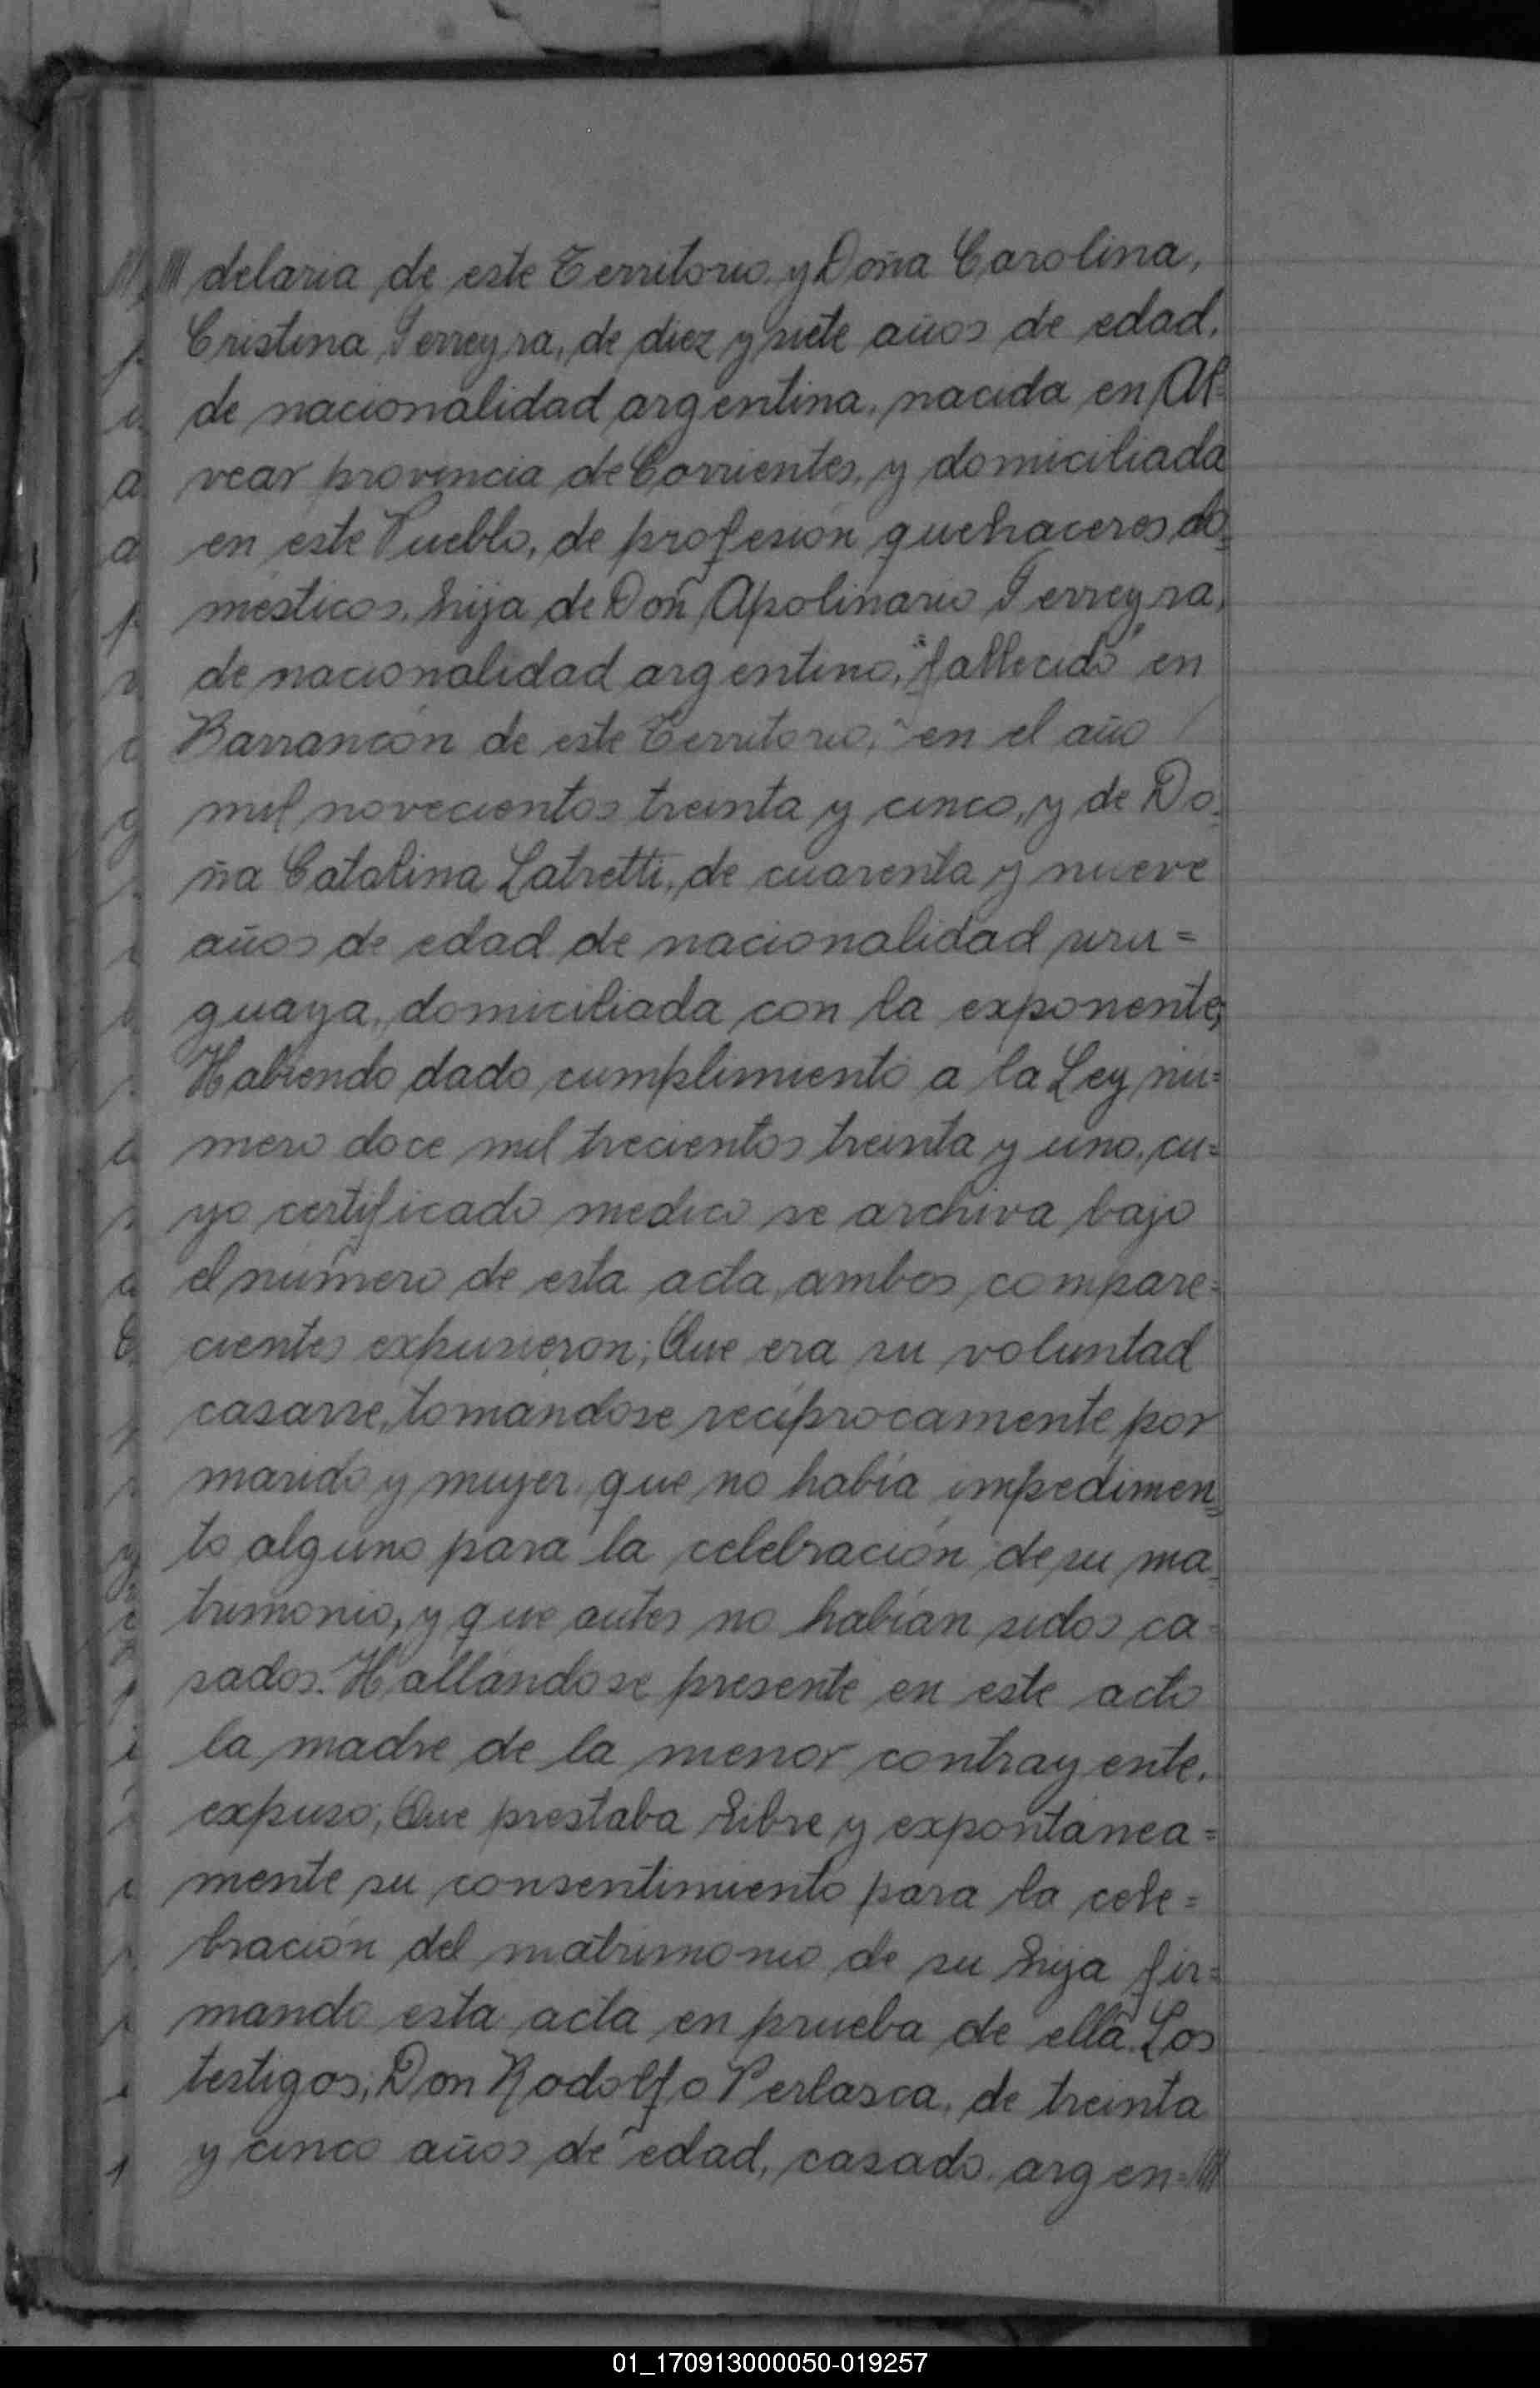 /// delaria de este Territorio y Doña Carolina,
Cristina Ferreyra, de diez y siete años de edad,
de nacionalidad argentina, nacida en Al=
vear provincia de Corrientes, y domiciliada
en este Pueblo, de profesión quehaceres do=
mésticos, hija de Don Apolinario Ferreyra,
de nacionalidad argentino, "fallecido" en
Barrancón de este Territorio, en el año
mil novecientos treinta y cinco, y de Do=
ña Catalina Latretti, de cuarenta y nueve
años de edad de nacionalidad uru=
guaya, domiciliada con la exponente;
Habiendo dado cumplimiento a la Ley nú=
mero doce mil trecientos treinta y uno, cu=
yo certificado medico se archiva bajo
el número de esta acta, ambos compare=
cientes expusieron; Que era su voluntad
casarse, tomándose recíprocamente por
marido y mujer, que no había impedimen=
to alguno para la celebración de su ma=
trimonio, y que antes no habían sidos ca=
sados. Hallándose presente en este acto
la madre de la menor contrayente,
expuso; Que prestaba libre y expontanea=
mente su consentimiento para la cele=
bración del matrimonio de su hija fir=
mando esta acta en prueba de ella. Los
testigos; Don Rodolfo Perlasca, de treinta
y cinco años de edad, casado, argen=///
01_170913000050-019257